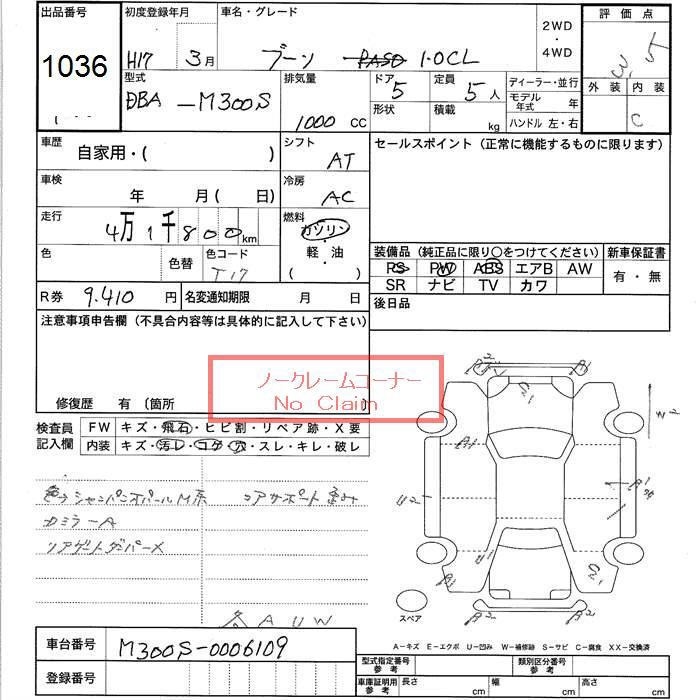 出品番号 初度登録年月 車名・グレード 2WD ・ 4WD 評価点
1036 H17 3月 ブーン PASO 1.0CL
型式 DBA-M300S 排気量 1000 cc ドア 5 定員 5人 ディーラー・並行 外装 内装
形状 積載 kg モデル年式 年 C
ハンドル 左・右
車歴 自家用・( ) シフト AT セールスポイント (正常に機能するものに限ります)
車検 年 月( 日) 冷房 AC
走行 4万1千800km 燃料 ガソリン・軽・油 ( )
色 色替 色コード T17
装備品 (純正品に限り○をつけてください) 新車保証書
PS PW ABS エアB AW 有・無
SR ナビ TV カワ
R券 9.410 円 名変通知期限 月 日 後日品
注意事項申告欄 (不具合内容等は具体的に記入して下さい)
ノークレームコーナー
No Claim
修復歴 有 〔箇所 〕
検査員記入欄 FW キズ・飛石・ヒビ割・リペア跡・X要
内装 キズ・汚レ・コゲ・穴・スレ・キレ・破レ
シャンパンオパールM系 コアサポート歪み
カミラーA
リアゲートダンパーX
AUW
スペア
A-キズ E-エクボ U-凹み W-補修跡 S-サビ C-腐食 XX-交換済
車台番号 M300S-0006109
登録番号
型式指定番号 参考 類別区分番号 参考
車庫証明用 参考 長さ cm 幅 cm 高さ cm